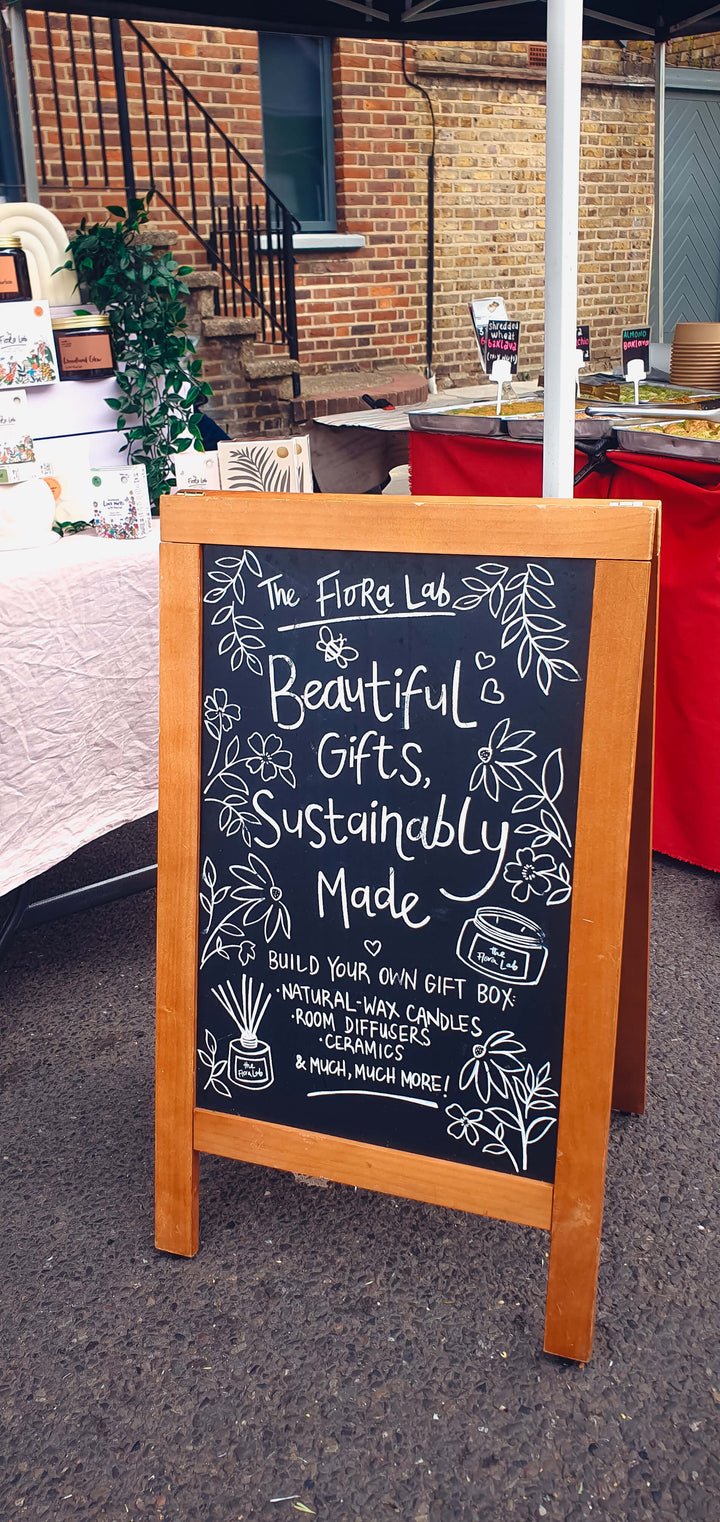 The Flora Lab
Beautiful
Gifts,
Sustainably
Made
BUILD YOUR OWN GIFT BOX:
·NATURAL-WAX CANDLES
·ROOM DIFFUSERS
·CERAMICS
& MUCH, MUCH MORE!
the
Flora Lab
the
Flora Lab
Flora Lab
Woodland Glow
the Flora Lab
shredded
wheat
baklava
ALMOND
BAKLAVA